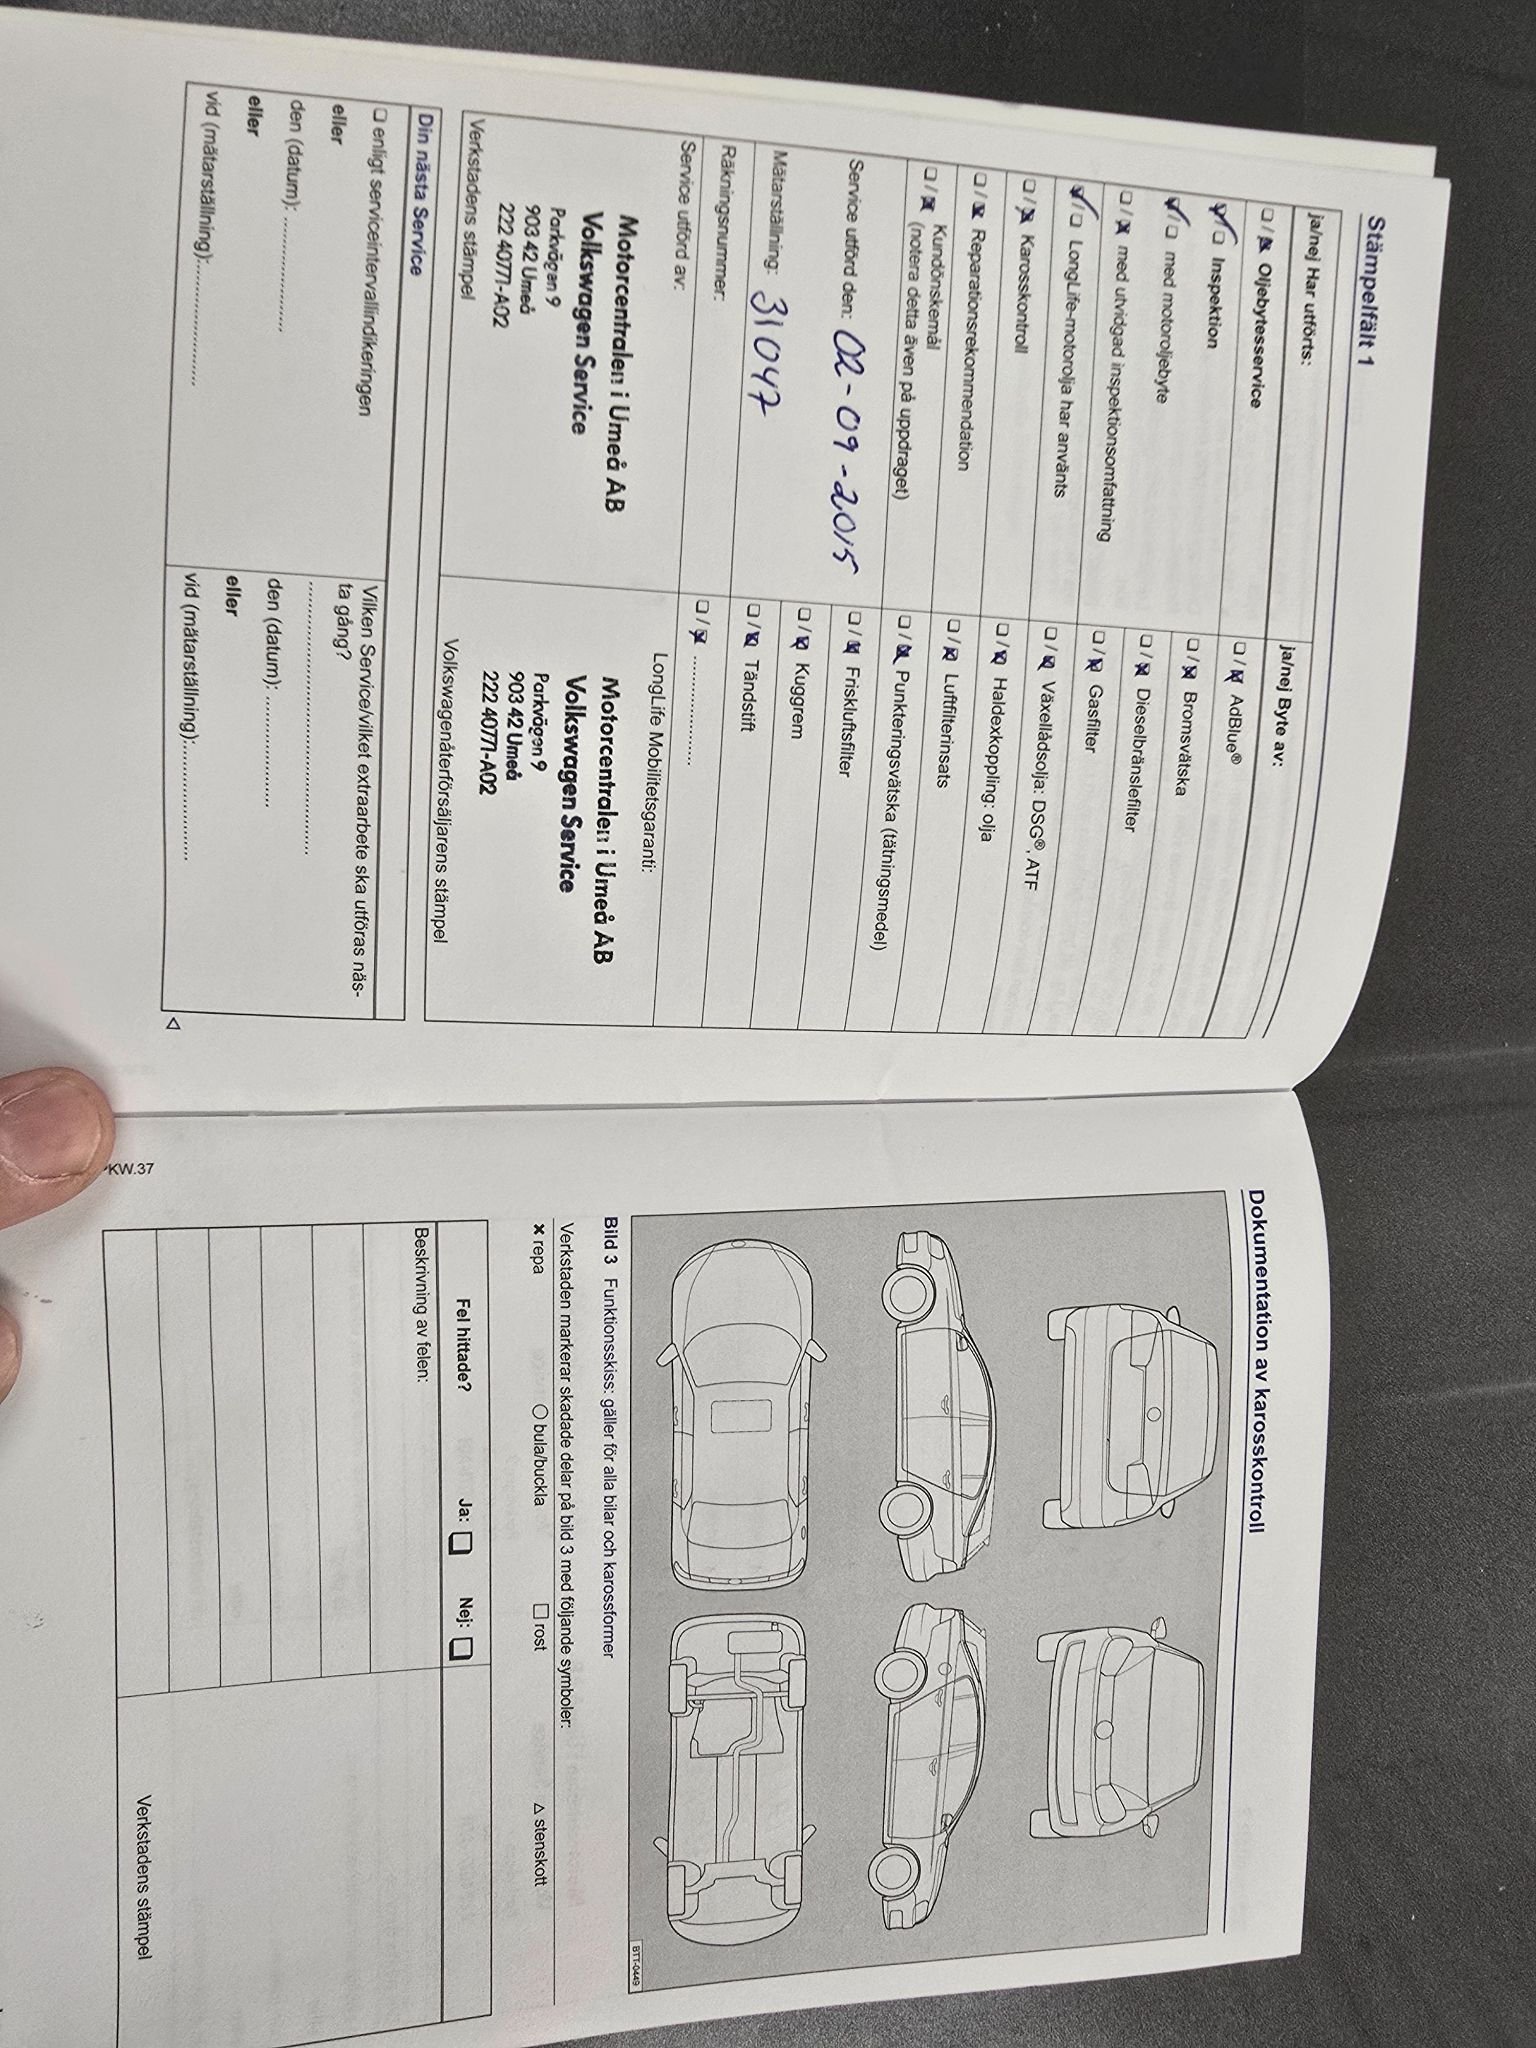 Stämpelfält 1
ja/nej Har utförts:
❑ / ☒ Oljebytesservice
☑ / ❑ Inspektion
☑ / ❑ med motoroljebyte
❑ / ☒ med utvidgad inspektionsomfattning
☑ / ❑ LongLife-motorolja har använts
❑ / ☒ Karosskontroll
❑ / ☒ Reparationsrekommendation
❑ / ☒ Kundönskemål
(notera detta även på uppdraget)
Service utförd den: 02-09-2015
Mätarställning: 31047
Räkningsnummer:
Service utförd av:
Motorcentralen i Umeå AB
Volkswagen Service
Parkvägen 9
903 42 Umeå
222 40771-A02
Verkstadens stämpel
ja/nej Byte av:
❑ / ☒ AdBlue®
❑ / ☒ Bromsvätska
❑ / ☒ Dieselbränslefilter
❑ / ☒ Gasfilter
❑ / ☒ Växellådsolja: DSG®, ATF
❑ / ☒ Haldexkoppling: olja
❑ / ☒ Luftfilterinsats
❑ / ☒ Punkteringsvätska (tätningsmedel)
❑ / ☒ Friskluftsfilter
❑ / ☒ Kuggrem
❑ / ☒ Tändstift
❑ / ☒ ....................
LongLife Mobilitetsgaranti:
Motorcentralen i Umeå AB
Volkswagen Service
Parkvägen 9
903 42 Umeå
222 40771-A02
Volkswagenåterförsäljarens stämpel
Din nästa Service
❑ enligt serviceintervallindikeringen
eller
den (datum): ......................
eller
vid (mätarställning):......................
Vilken Service/vilket extraarbete ska utföras näs-
ta gång?
..................................................
den (datum): ......................
eller
vid (mätarställning):......................
◁
Dokumentation av karosskontroll
BTT-0449
Bild 3 Funktionsskiss: gäller för alla bilar och karossformer
Verkstaden markerar skadade delar på bild 3 med följande symboler:
✖ repa ○ bula/buckla □ rost △ stenskott
Fel hittade? Ja: ❑ Nej: ❑
Beskrivning av felen:
Verkstadens stämpel
KW.37